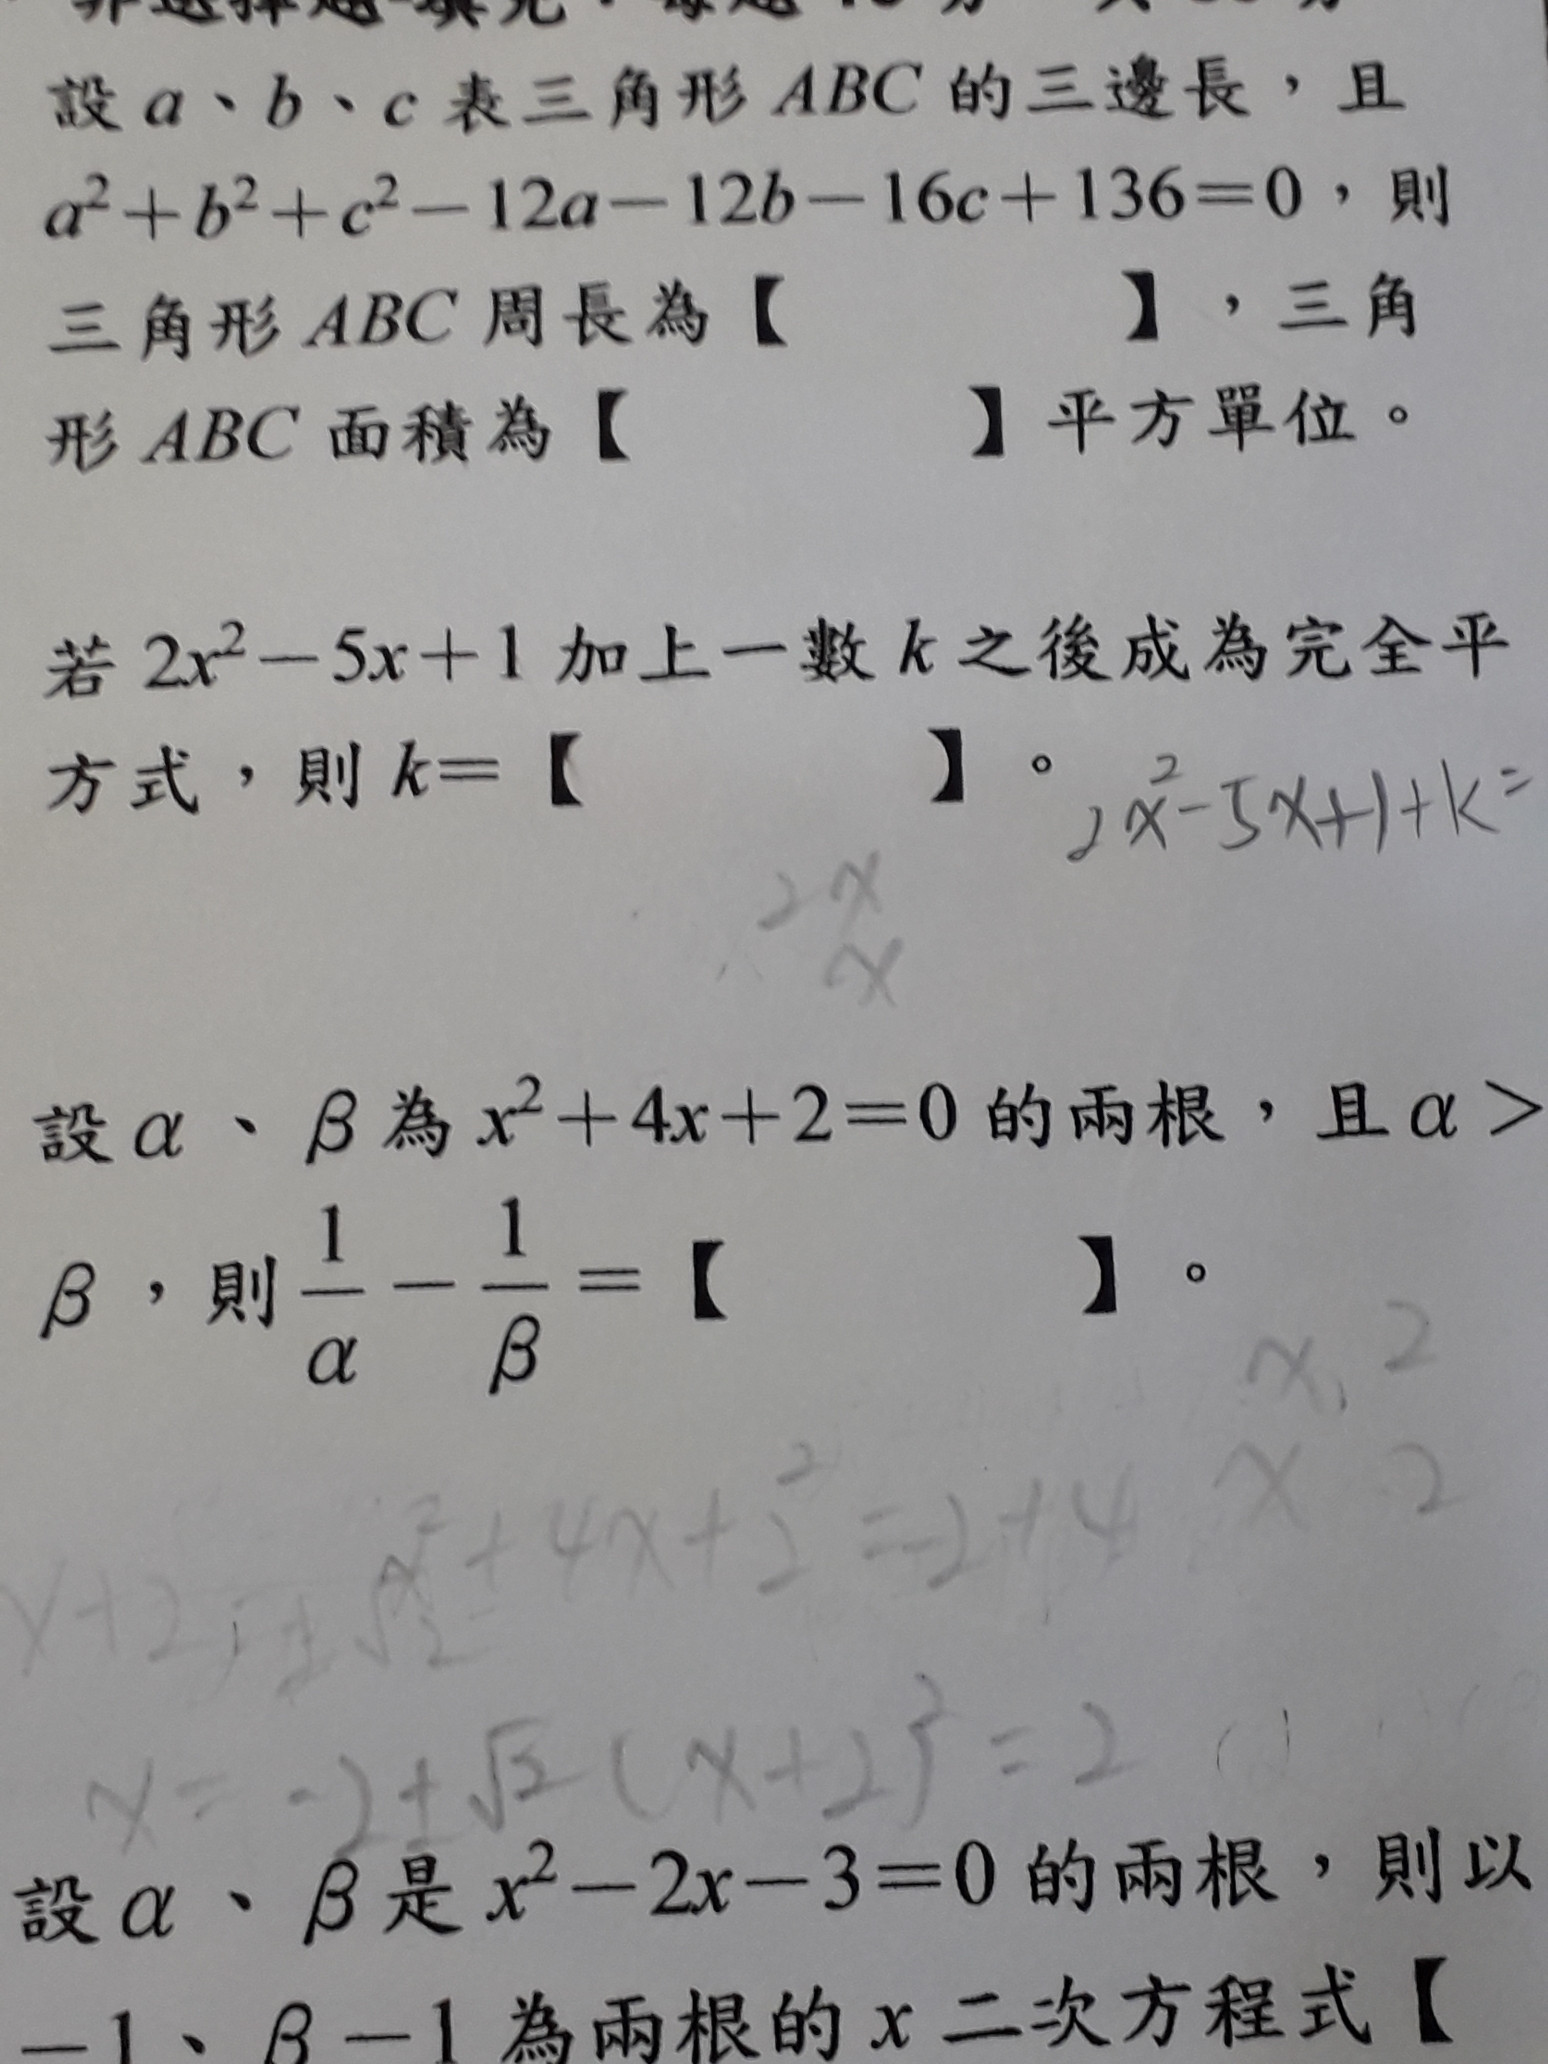 設 a、b、c 表三角形 ABC 的三邊長，且
a²+b²+c²−12a−12b−16c+136=0，則
三角形 ABC 周長為【　　　】，三角
形 ABC 面積為【　　　】平方單位。
若 2x²−5x+1 加上一數 k 之後成為完全平
方式，則 k=【　　　】。
2x²-5x+1+k=
2x
x
設 α、β 為 x²+4x+2=0 的兩根，且 α>
β，則 1/α − 1/β =【　　　】。
x 2
x 2
x²+4x+2²=-2+4
x+2=±√2
x=-2±√2 (x+2)²=2
設 α、β 是 x²−2x−3=0 的兩根，則以
−1、β−1 為兩根的 x 二次方程式【